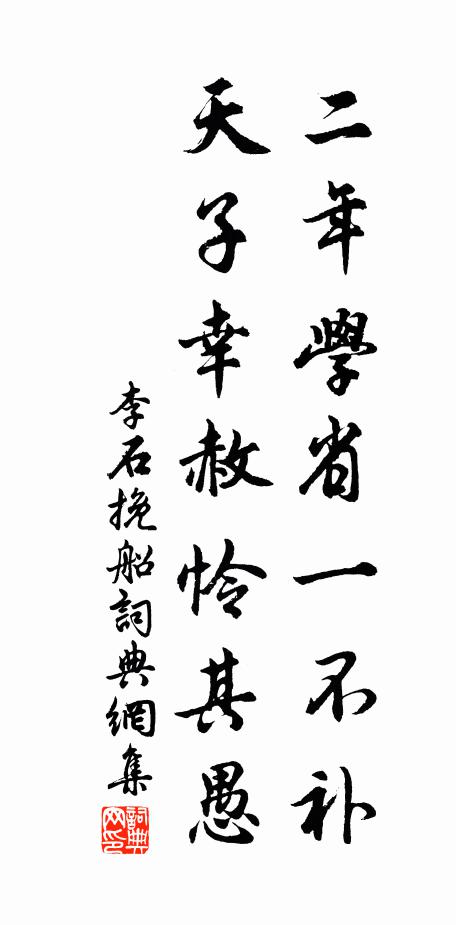 二年學省一不补
天子幸赦怜其愚
李石挽船詞典網集
詞典網印